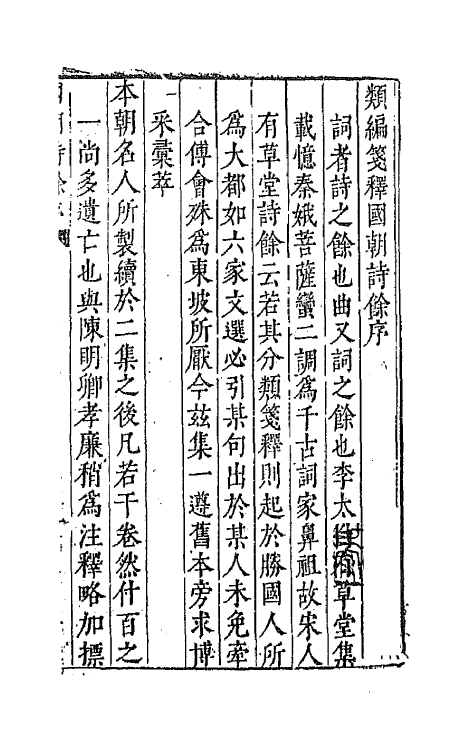 類編箋釋國朝詩餘序
詞者詩之餘也曲又詞之餘也李太白有草堂集
載憶秦娥菩薩蠻二調爲千古詞家鼻祖故宋人
有草堂詩餘云若其分類箋釋則起於勝國人所
爲大都如六家文選必引某句出於某人未免牽
合傅會殊爲東坡所厭今玆集一遵舊本旁求博
采彙萃
本朝名人所製續於二集之後凡若干卷然什百之
一尚多遺亡也與陳明卿孝廉稍爲注釋略加摽
詩餘序